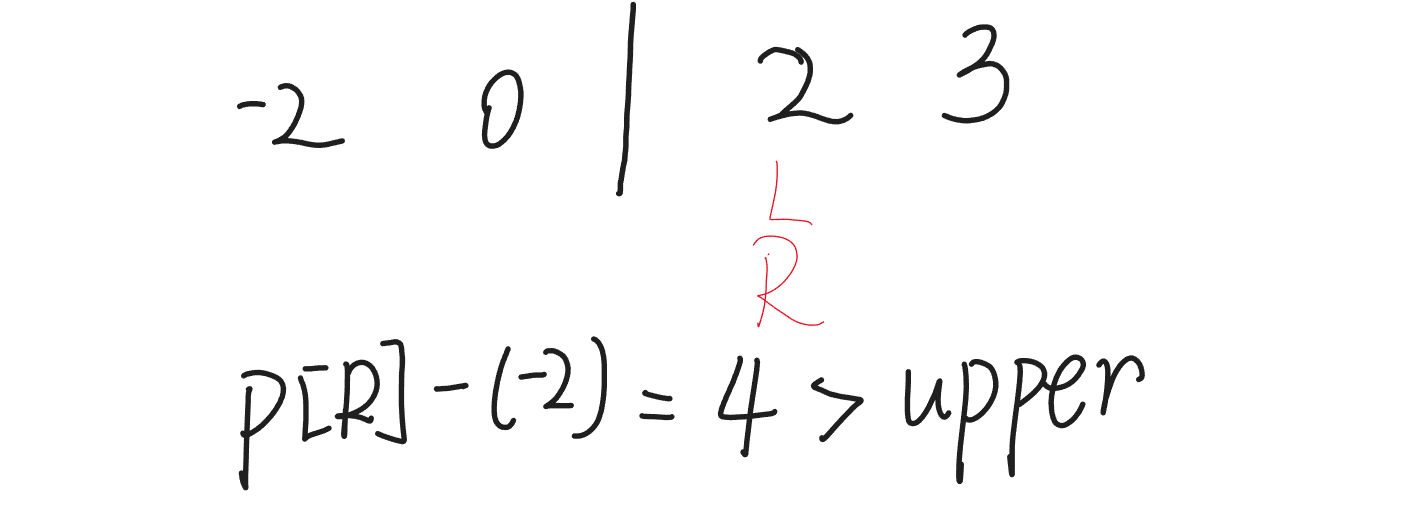 -2 0 | 2 3
L
R
p[R] - (-2) = 4 > upper